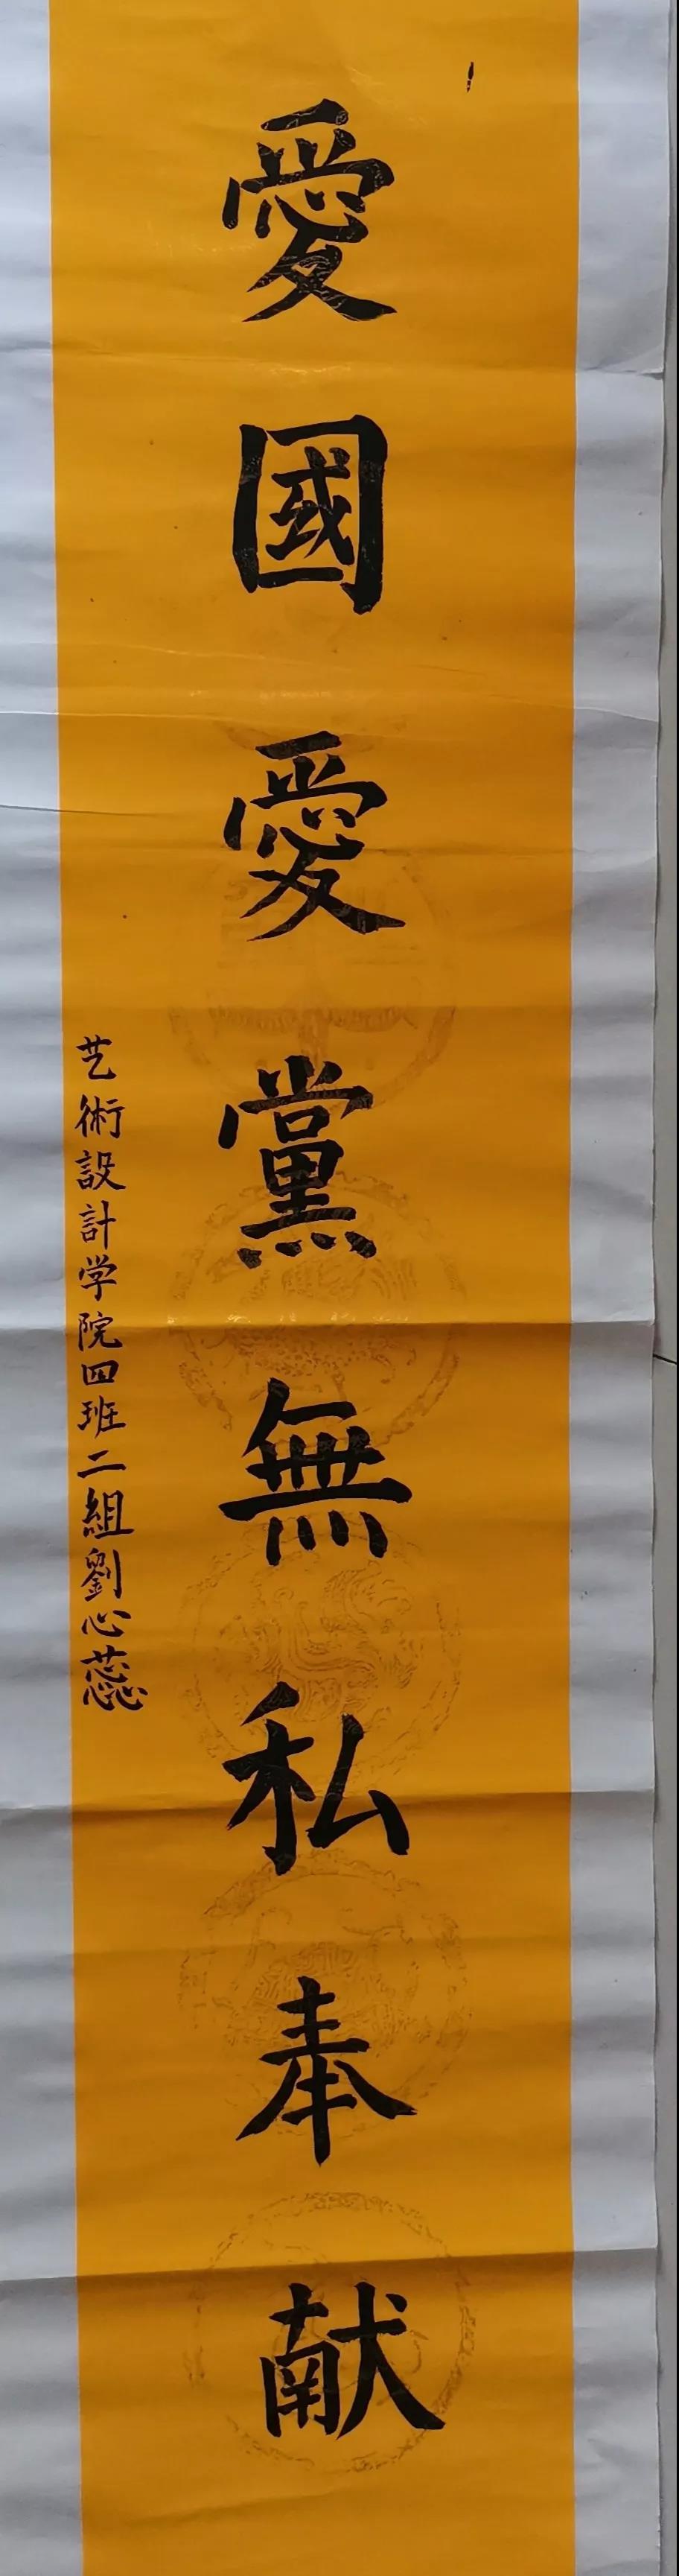 愛國愛黨無私奉献
艺術設計学院四班二組劉心蕊